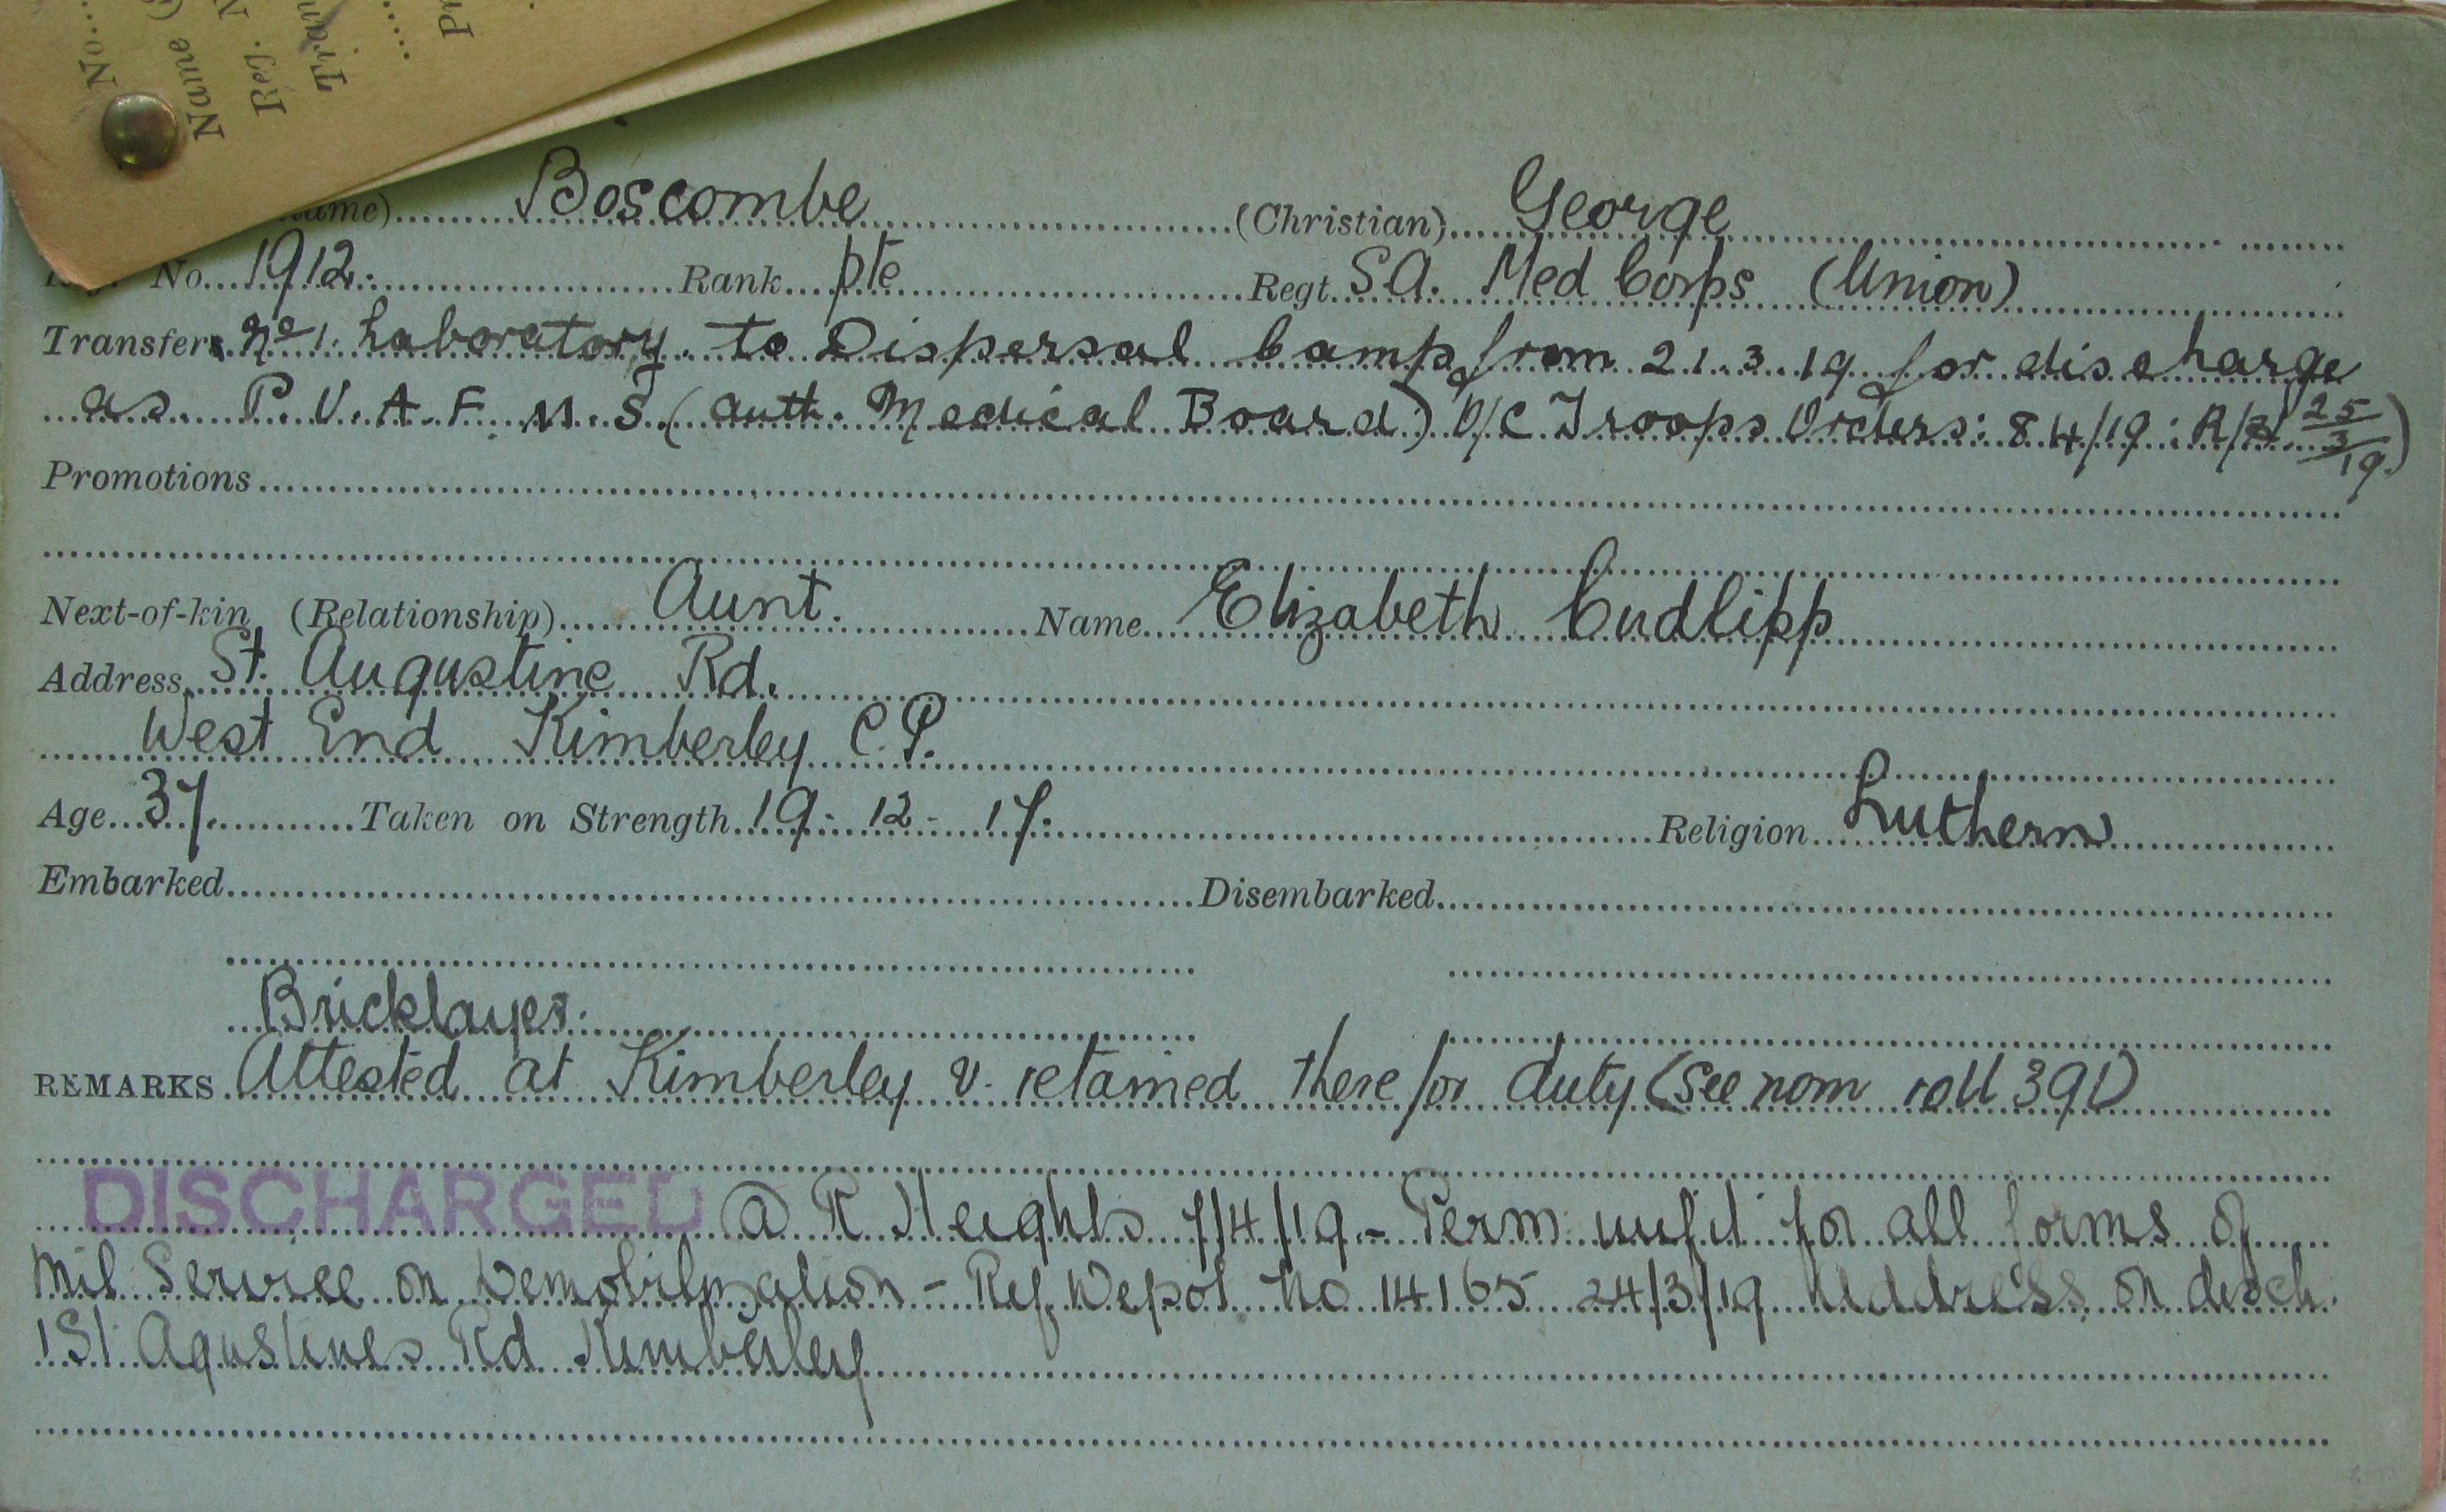 No..
Name (
Reg. N
Tran
....
Pr
name) Boscombe (Christian) George
No. 1912. Rank pte Regt. S.A. Med Corps (Union)
Transfers No 1. Laboratory. to Dispersal Camp from 21.3.19 for discharge
as P.U.A.F.M.S. (auth. Medical Board) O/C Troops Orders: 84/19: R/ 25/3/19.)
Promotions
Next-of-kin (Relationship) Aunt. Name Elizabeth Cudlipp
Address St. Augustine Rd.
West End Kimberley C.P.
Age 37. Taken on Strength 19-12-17. Religion Luthern
Embarked Disembarked
Bricklayer.
REMARKS Attested at Kimberley v. retained there for duty (See nom roll 391)
DISCHARGED @ R Heights 7/4/19 - Perm: unfit for all forms of
Mil: Service on Demobilization - Ref. Depot No 14165 24/3/19 Address on disch.
1 St. Agustines Rd Kimberley